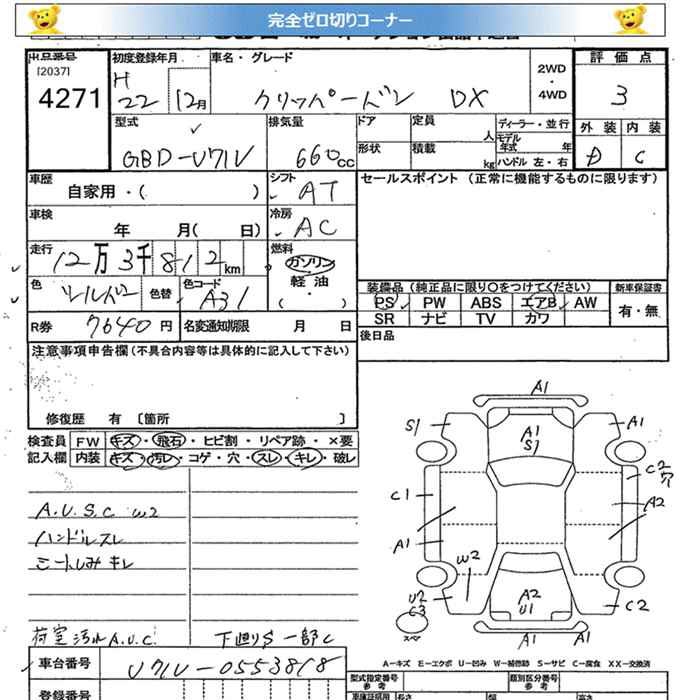 完全ゼロ切りコーナー
出品番号
[2037]
4271
初度登録年月
H
22
12月
車名・グレード
クリッパーバン DX
2WD
・
4WD
評価点
3
外装 内装
D C
型式
GBD-U71V
排気量
660cc
ドア
定員
人
形状
積載
kg
ディーラー・並行
モデル
年式
年
ハンドル 左・右
車歴
自家用・( )
シフト
AT
セールスポイント (正常に機能するものに限ります)
車検
年 月( 日)
冷房
AC
走行
12万3千812km
燃料
ガソリン
軽油
・
( )
色
シルバー
色替
色コード
A31
R券 7640円
名変通知期限 月 日
装備品(純正品に限り○をつけてください)
新車保証書
PS PW ABS エアB AW
SR ナビ TV カワ
有・無
後日品
注意事項申告欄(不具合内容等は具体的に記入して下さい)
修復歴 有 [箇所 ]
検査員
記入欄
FW キズ・飛石・ヒビ割・リペア跡・×要
内装 キズ・汚レ・コゲ・穴・スレ・キレ・破レ
A.U.S.C W2
ハンドルスレ
シートしみキレ
荷室汚れA.U.C
下廻りS一部C
A1
S1
A1
S1
A1
C1
C2
穴
A2
A1
W2
U2
C3
スペア
A2
U1
C2
A1
A1
A-キズ E-エクボ U-凹み W-補修跡 S-サビ C-腐食 XX-交換済
車台番号
U71V-0553818
登録番号
型式指定番号
参考
類別区分番号
参考
車庫証明用
参考
長さ
幅
高さ